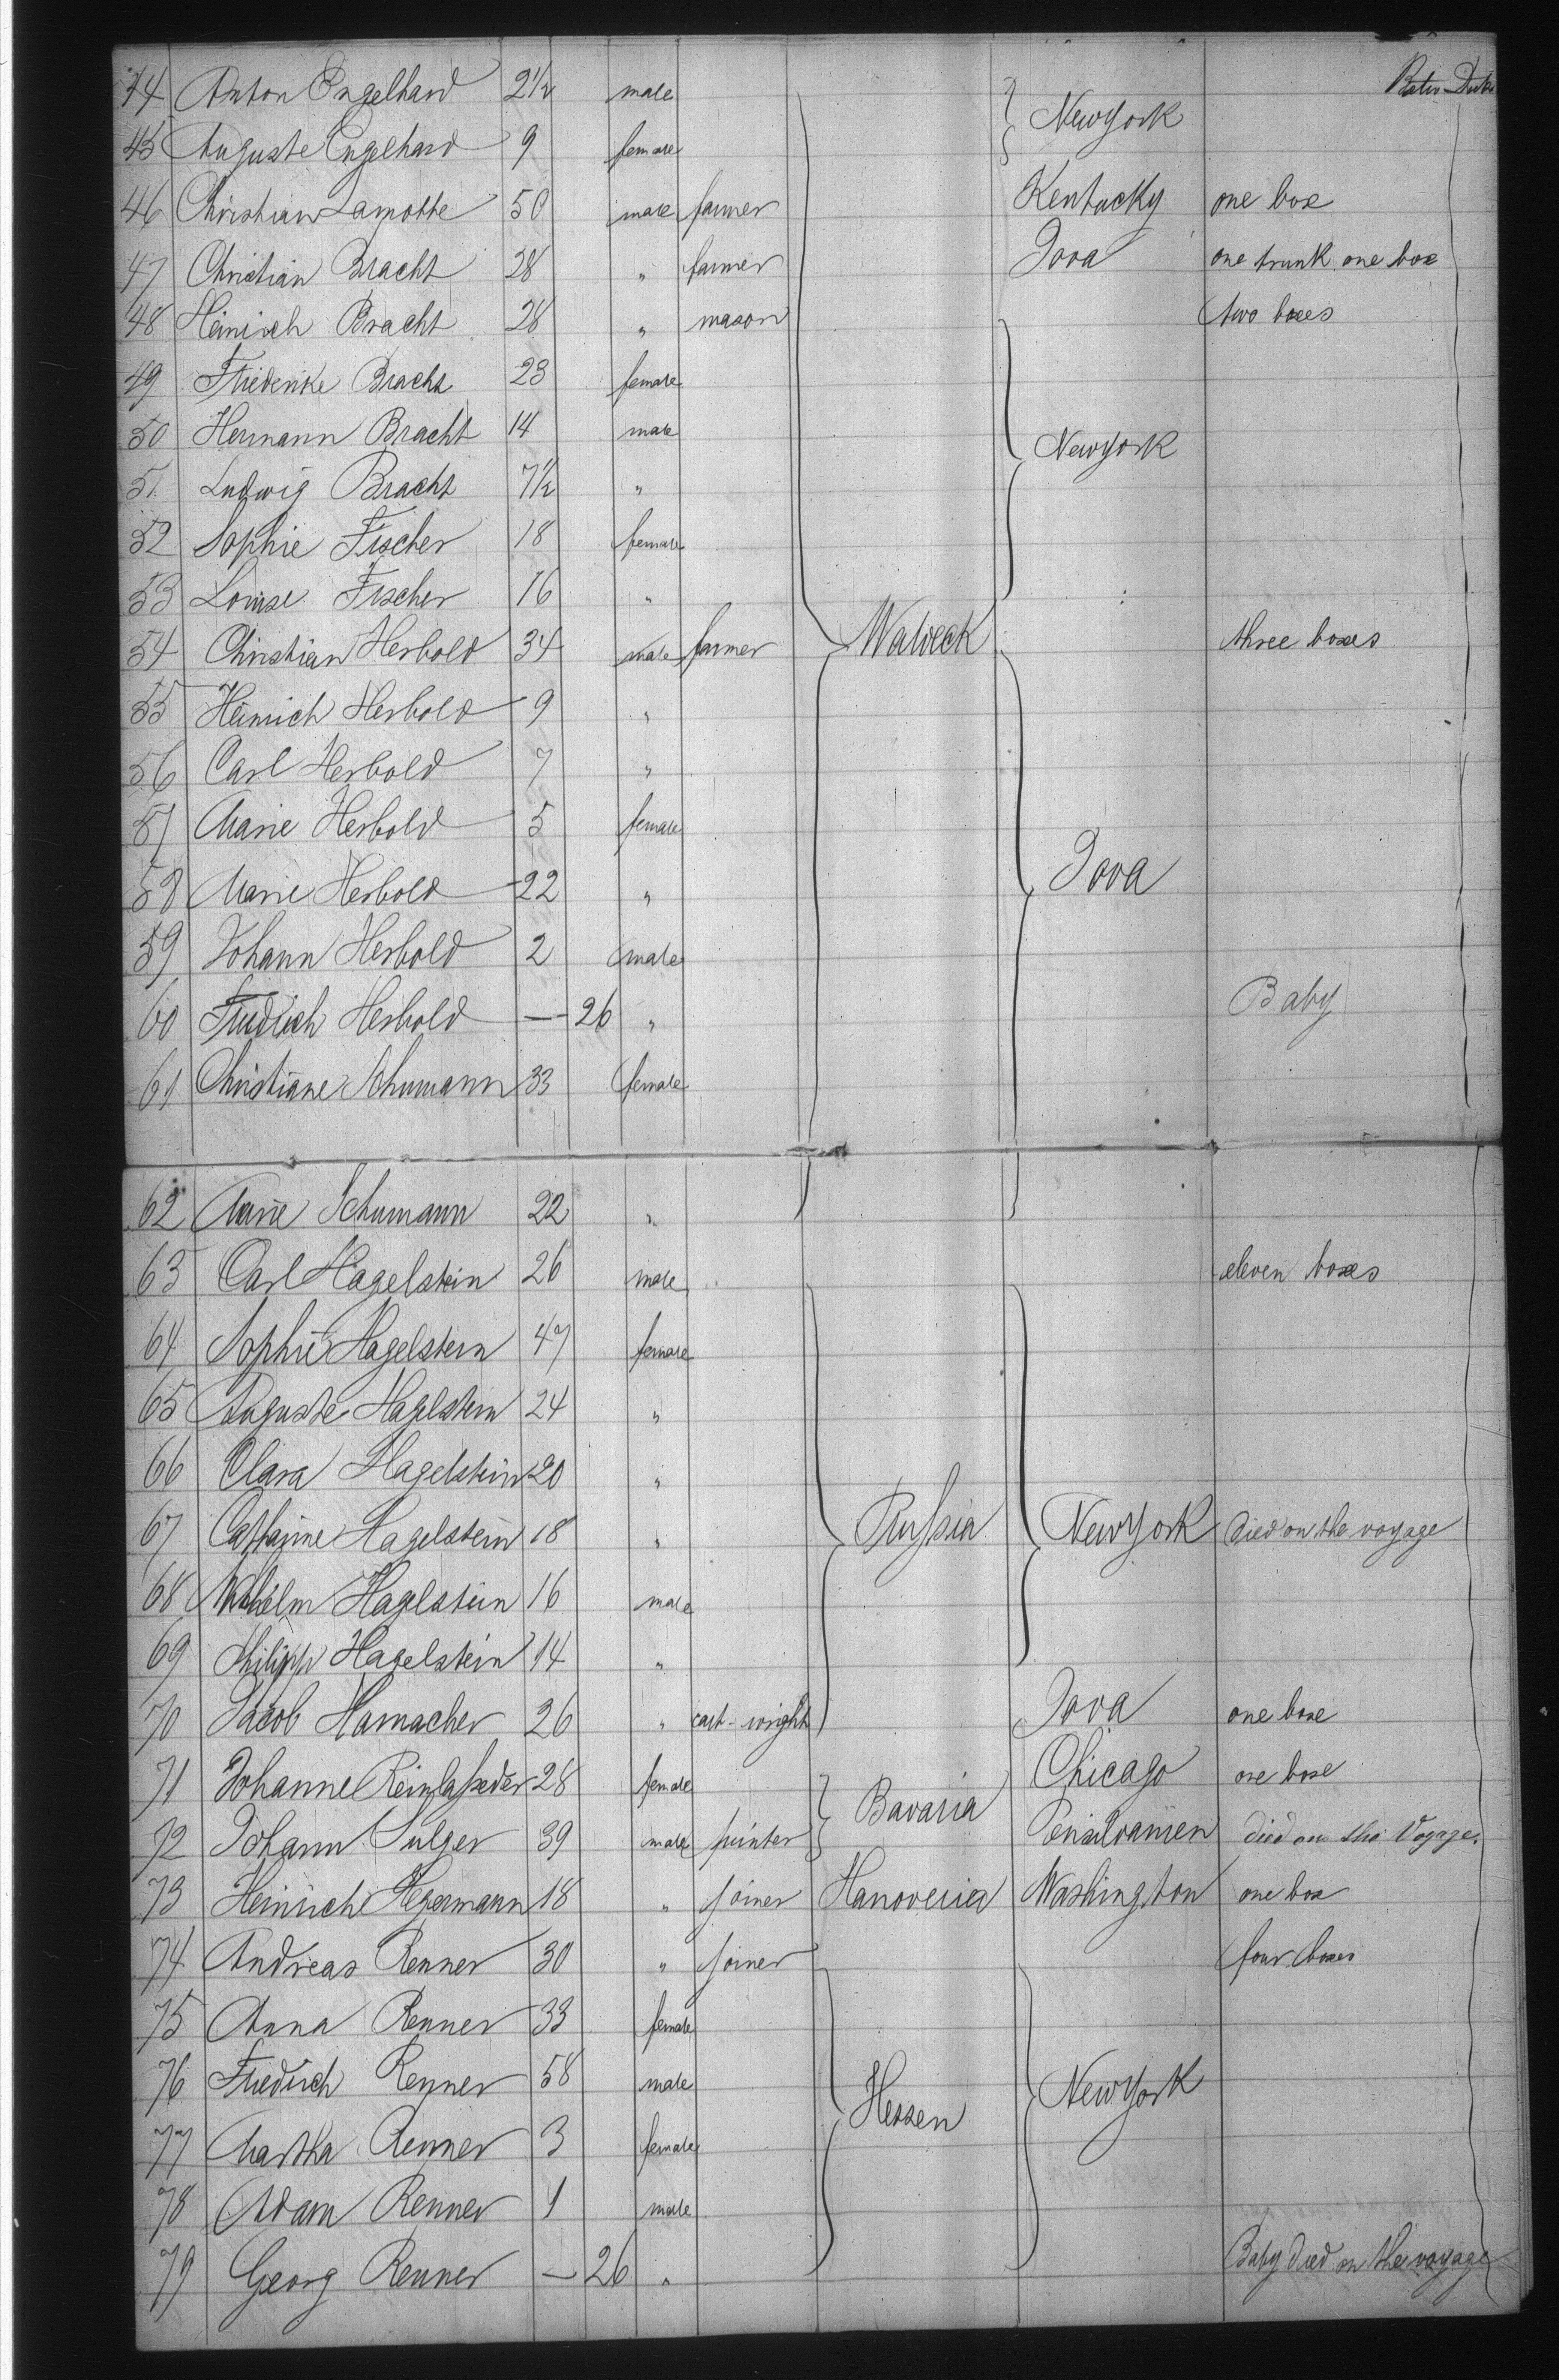 74 Anton Engelhard 2½ male Newyork
45 Auguste Engelhard 9 female
46 Christian Lamotte 50 male farmer Kentucky one box
47 Christian Bracht 28 " farmer Iova one trunk one box
48 Heinrich Bracht 28 " mason two boxes
49 Friederike Bracht 23 female
50 Hermann Bracht 14 male Newyork
51 Ludwig Bracht 7½ "
52 Sophie Fischer 18 female
53 Louise Fischer 16 "
54 Christian Herbold 34 male farmer Waldeck three boxes
55 Heinrich Herbold 9 "
56 Carl Herbold 7 "
57 Marie Herbold 5 female
58 Marie Herbold 22 " Iova
59 Johann Herbold 2 male
60 Friedrich Herbold — 26 " Baby
61 Christiane Schumann 33 female
62 Marie Schumann 22 "
63 Carl Hagelstein 26 male eleven boxes
64 Sophie Hagelstein 47 female
65 Auguste Hagelstein 24 "
66 Clara Hagelstein 20 "
67 Catharine Hagelstein 18 " Prussia Newyork died on the voyage
68 Wilhelm Hagelstein 16 male
69 Philipp Hagelstein 14 "
70 Jacob Hamacher 26 " cart-wright Iova one box
71 Johanne 28 female Bavaria Chicago one box
72 Johann Sulger 39 male Pensilvanien died on the Voyage.
73 Heinrich Hegermann 18 " joiner Hanoveria Washington one box
74 Andreas Renner 30 " joiner four boxes
75 Anna Renner 33 female
76 Friedrich Renner 58 male Hessen Newyork
77 Martha Renner 3 female
78 Adam Renner 1 male
79 Georg Renner — 26 " Baby died on the voyage